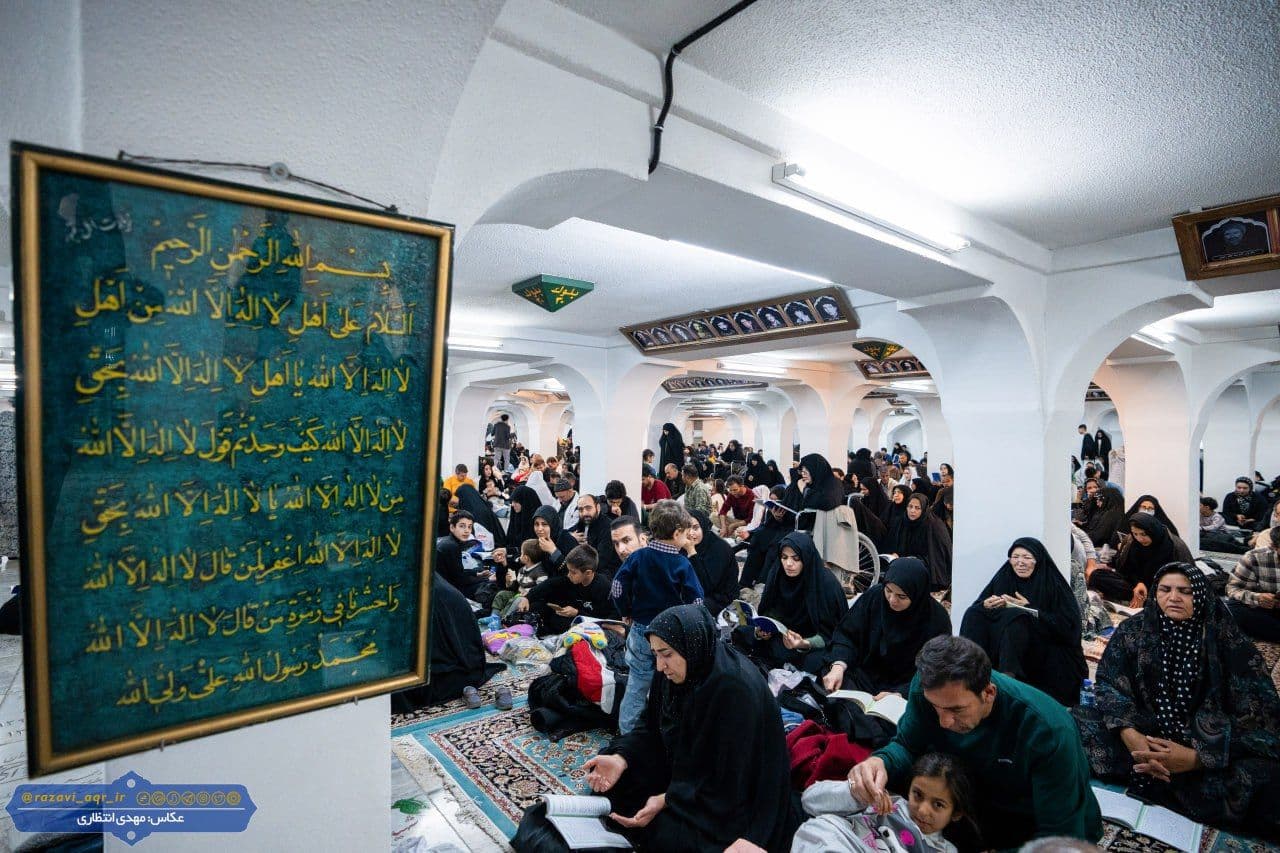 زیارت اهل قبور
بِسْمِ اللهِ الرَّحْمٰنِ الرَّحِیْمِ
اَلسَّلامُ عَلیٰ اَهْلِ لا اِلٰهَ اِلاَّ اللهُ مِنْ اَهْلِ
لا اِلٰهَ اِلاَّ اللهُ یا اَهْلَ لا اِلٰهَ اِلاَّ اللهُ بِحَقِّ
لا اِلٰهَ اِلاَّ اللهُ کَیْفَ وَجَدْتُمْ قَوْلَ لا اِلٰهَ اِلاَّ اللهُ
مِنْ لا اِلٰهَ اِلاَّ اللهُ یا لا اِلٰهَ اِلاَّ اللهُ بِحَقِّ
لا اِلٰهَ اِلاَّ اللهُ اغْفِرْ لِمَنْ قالَ لا اِلٰهَ اِلاَّ اللهُ
وَاحْشُرْنا فی زُمْرَةِ مَنْ قالَ لا اِلٰهَ اِلاَّ اللهُ
مُحَمَّدٌ رَسُولُ اللهِ عَلِیٌّ وَلِیُّ اللهِ
بلوک
@razavi_aqr_ir
عکاس: مهدی انتظاری